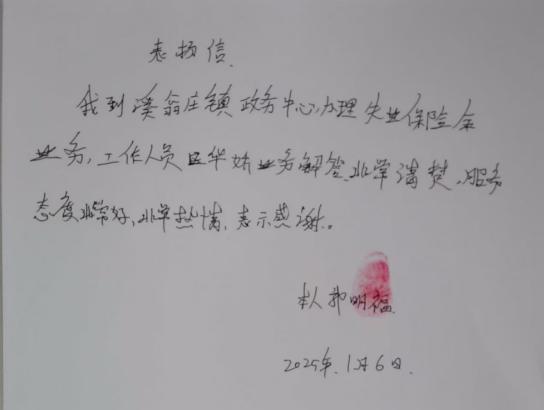 表扬信
我到溪翁庄镇政务中心办理失业保险金
业务,工作人员 华娇业务解答非常清楚,服务
态度非常好,非常热情,表示感谢。
本人郭明福
2025年.1月6日.